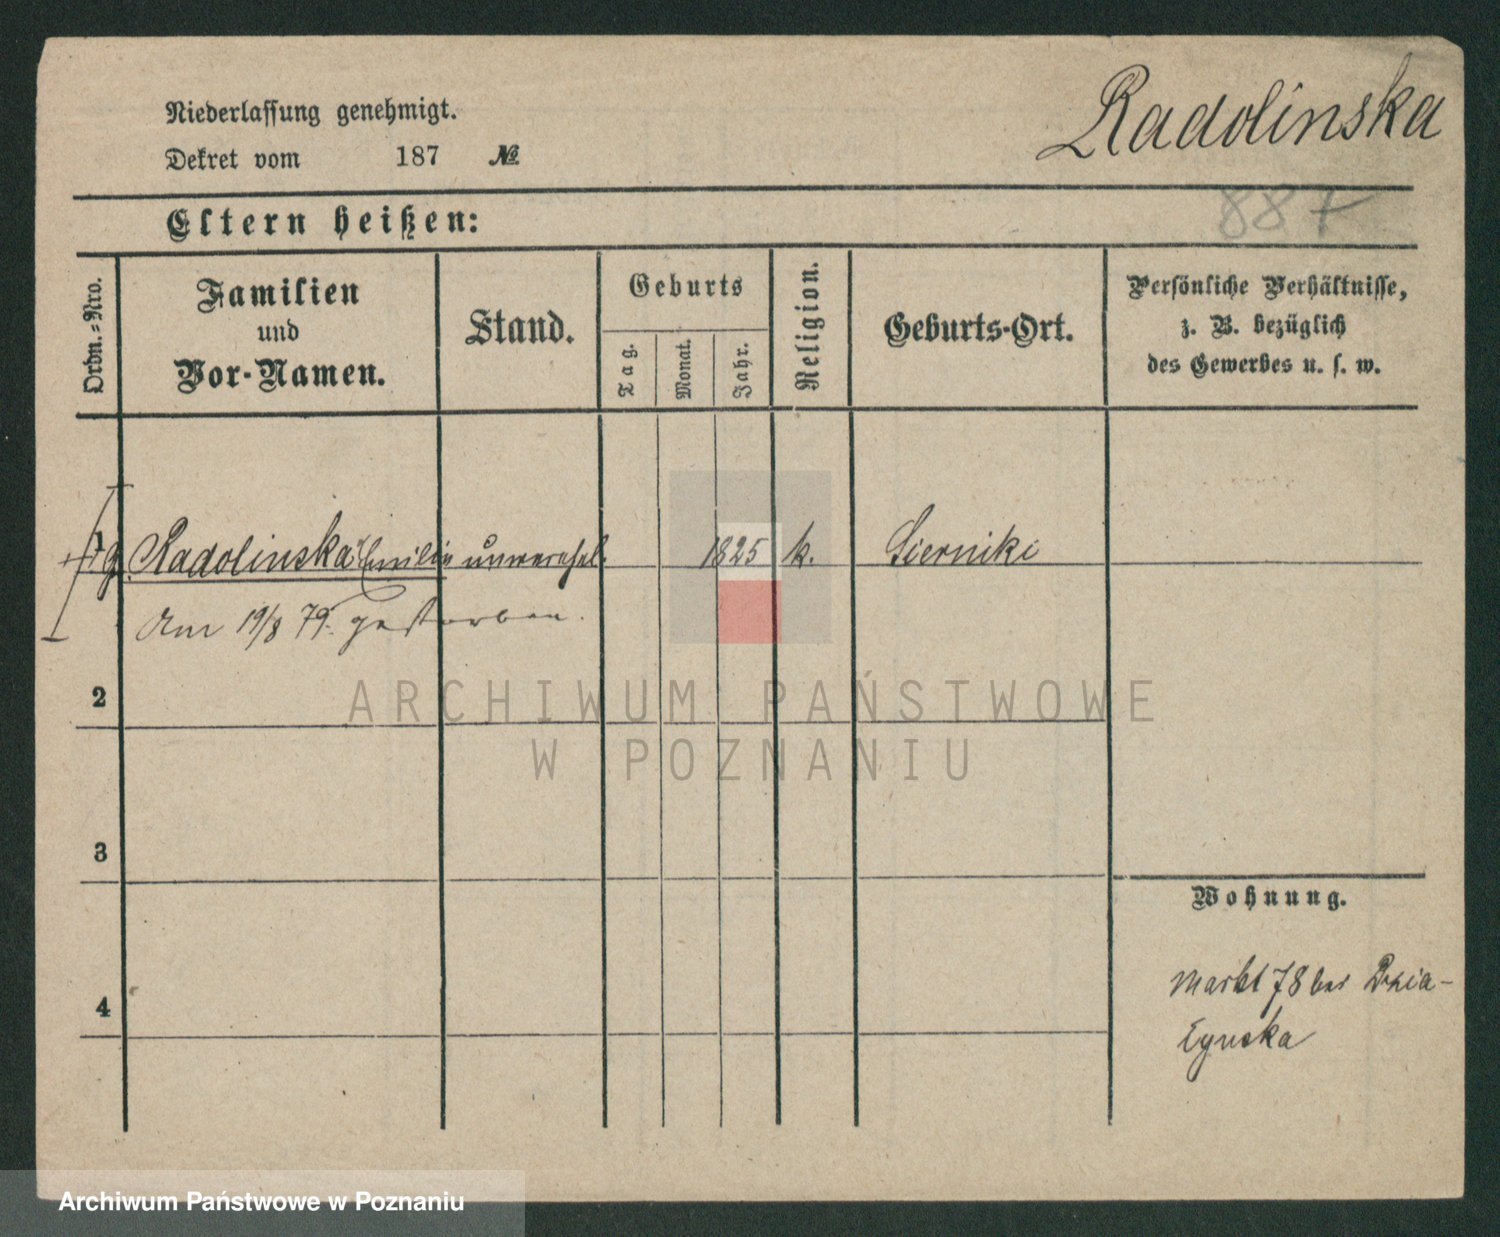 Niederlassung genehmigt.
Dekret vom 187 №
Radolinska
887
Eltern heißen:
Ordn.-Nro.
Familien
und
Vor-Namen.
Stand.
Geburts
Tag.
Monat.
Jahr.
Religion.
Geburts-Ort.
Persönliche Verhältnisse,
z. B. bezüglich
des Gewerbes u. s. w.
1 Radolinska Emilie unverehel. 1825 k. Sierniki
Am 19/8 79. gestorben.
2
3
4
Wohnung.
Markt 78 bei Dzia-
lynska
ARCHIWUM PAŃSTWOWE
W POZNANIU
Archiwum Państwowe w Poznaniu